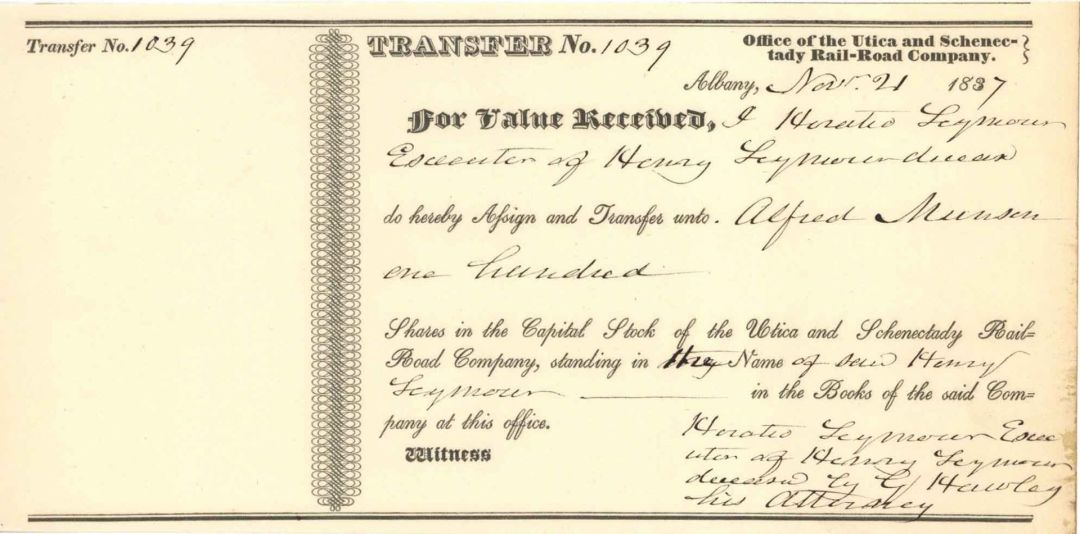 Transfer No. 1039
TRANSFER No. 1039
Office of the Utica and Schenec-
tady Rail-Road Company.
Albany, Novr. 21 1837
For Value Received, I Horatio Seymour
Executor of Henry Seymour deceased
do hereby Assign and Transfer unto. Alfred Munson
one hundred
Shares in the Capital Stock of the Utica and Schenectady Rail=
Road Company, standing in the Name of said Henry
Seymour in the Books of the said Com=
pany at this office.
Witness
Horatio Seymour Exec
utor of Henry Seymour
deceased by G Hawley
his Attorney